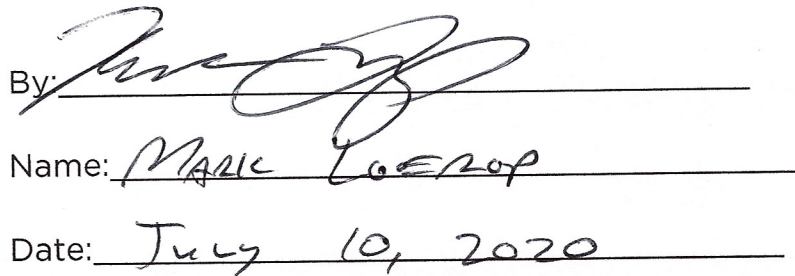 By:
Name: MARK LOEROP
Date: July 10, 2020